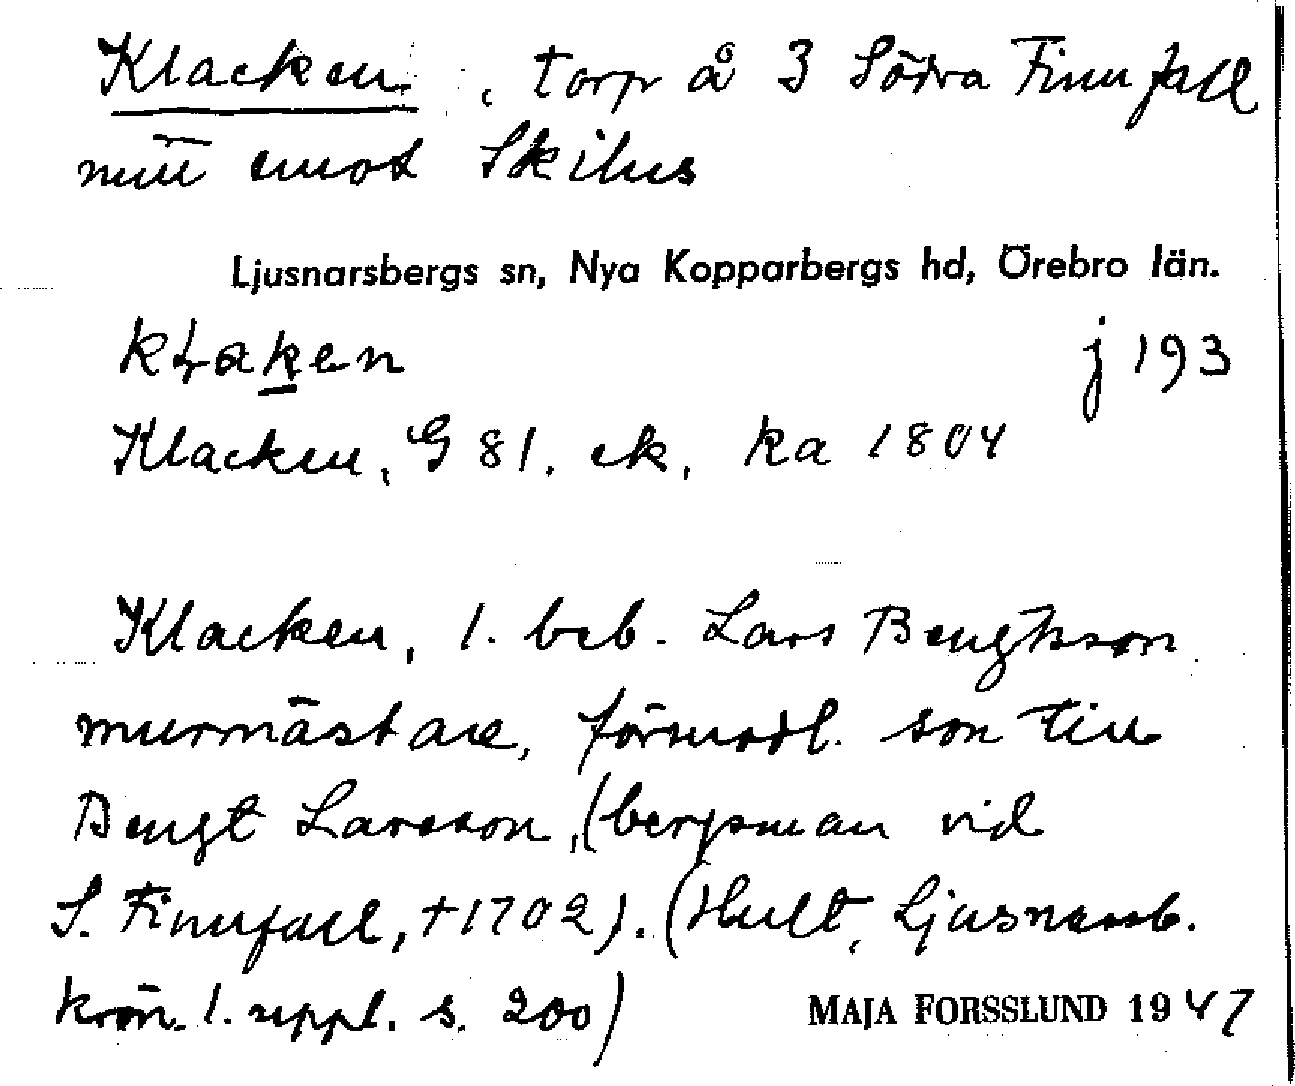 Klacken, torp å 3 Södra Finnfall
mitt emot Skihus
Ljusnarsbergs sn, Nya Kopparbergs hd, Örebro län.
kɫaken j 193
Klacken, G 81. ek. ka 1804
Klacken, 1. beb. Lars Bengtsson
murmästare, förmodl. son till
Bengt Larsson, (bergsman vid
S. Finnfall, †1702). (Hult, Ljusnarsb.
krön. 1. uppl. s. 200)
MAJA FORSSLUND 1947